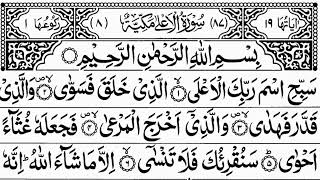 اٰيَاتُهَا ١٩ (٨٧) سُوْرَةُ الْاَعْلٰى مَكِّيَّةٌ (٨) رُكُوْعُهَا ١
بِسْمِ اللّٰهِ الرَّحْمٰنِ الرَّحِيْمِ
سَبِّحِ اسْمَ رَبِّكَ الْاَعْلَى ۙ‏﴿۱﴾ الَّذِىْ خَلَقَ فَسَوّٰى ۙ‏﴿۲﴾ وَالَّذِىْ
قَدَّرَ فَهَدٰى ۙ‏﴿۳﴾ وَالَّذِىْۤ اَخْرَجَ الْمَرْعٰى ۙ‏﴿۴﴾ فَجَعَلَهٗ غُثَآءً
اَحْوٰى ؕ‏﴿۵﴾ سَنُقْرِئُكَ فَلَا تَنْسٰٓى ۙ‏﴿۶﴾ اِلَّا مَا شَآءَ اللّٰهُ ؕ اِنَّهٗ